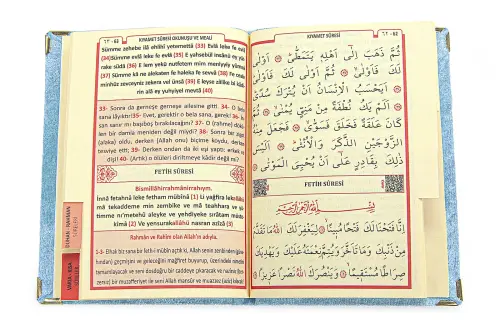 KIYAMET SÛRESİ OKUNUŞU VE MEALİ
٦٢ - 62
Sümme zehebe ilâ ehlihî yetemettâ (33) Evlâ leke fe evlâ
(34) Sümme evlâ leke fe evlâ (35) E yahsebül insânü en yüt
rake südâ (36) E lem yekü nutfetem mim meniyyiy yümnâ
(37) Sümme kâ ne alekaten fe haleka fe sevvâ (38) Fe ceale
minhüz zevceyniz zekera vel ünsâ (39) E leyse zâlike bi kâdi
rin alâ ey yuhyiyel mevtâ (40)
33- Sonra da gerneşe gerneşe ailesine gitti. 34- O belâ
sana lâyıktır! 35- Evet, gerektir o bela sana, gerek! 36- İn
san sanır mı başıboş bırakılacağını? 37- O (rahme) dökü
len bir damla meniden değil miydi? 38- Sonra bir aşılı
(alaka) oldu, derken (Allah onu) biçime koydu, derken
tesviye etti; 39- Derken ondan da iki eşi yaptı: erkek ve
dişi 40- (Artık) o ölüleri diriltmeye kâdir değil mi?
FETİH SÛRESİ
Bismillâhirrahmânirrahym.
İnnâ fetahnâ leke fetham mübînâ (1) Li yağfira lekallâhü
mâ tekaddeme min zembike ve mâ teahhara ve yü
timme ni'metehû aleyke ve yehdiyeke sırâtam müsta
kîmâ (2) Ve yensurakallâhü nasran azîzâ (3)
Rahmân ve Rahîm olan Allah'ın adıyla.
1-3- Elhak biz sana bir feth-i mübîn açtık ki, Allah senin zenbi
geçmişini ve geleceğini mağfiret buyurup, üzerindeki nimetini
tamamlayacak ve seni dosdoğru bir caddeye çıkaracak ve
ile seni Allah mansûr ve muazzez (aziz)
٦٢ - 62
ثُمَّ ذَهَبَ اِلٰٓى اَهْلِهٖ يَتَمَطّٰىۜ اَوْلٰى
لَكَ فَاَوْلٰىۙ ثُمَّ اَوْلٰى لَكَ فَاَوْلٰىۜ
اَيَحْسَبُ الْاِنْسَانُ اَنْ يُتْرَكَ سُدًىۜ
اَلَمْ يَكُ نُطْفَةً مِنْ مَنِيٍّ يُمْنٰىۙ ثُمَّ
كَانَ عَلَقَةً فَخَلَقَ فَسَوّٰىۙ فَجَعَلَ مِنْهُ
الزَّوْجَيْنِ الذَّكَرَ وَالْاُنْثٰىۜ اَلَيْسَ
ذٰلِكَ بِقَادِرٍ عَلٰٓى اَنْ يُحْيِيَ الْمَوْتٰى
FETİH SÛRESİ
بِسْمِ اللّٰهِ الرَّحْمٰنِ الرَّحٖيمِ
اِنَّا فَتَحْنَا لَكَ فَتْحًا مُبٖينًاۙ لِيَغْفِرَ لَكَ اللّٰهُ مَا تَقَدَّمَ
مِنْ ذَنْبِكَ وَمَا تَاَخَّرَ وَيُتِمَّ نِعْمَتَهُ عَلَيْكَ وَيَهْدِيَكَ
صِرَاطًا مُسْتَقٖيمًاۙ وَيَنْصُرَكَ اللّٰهُ نَصْرًا عَزٖيزًا